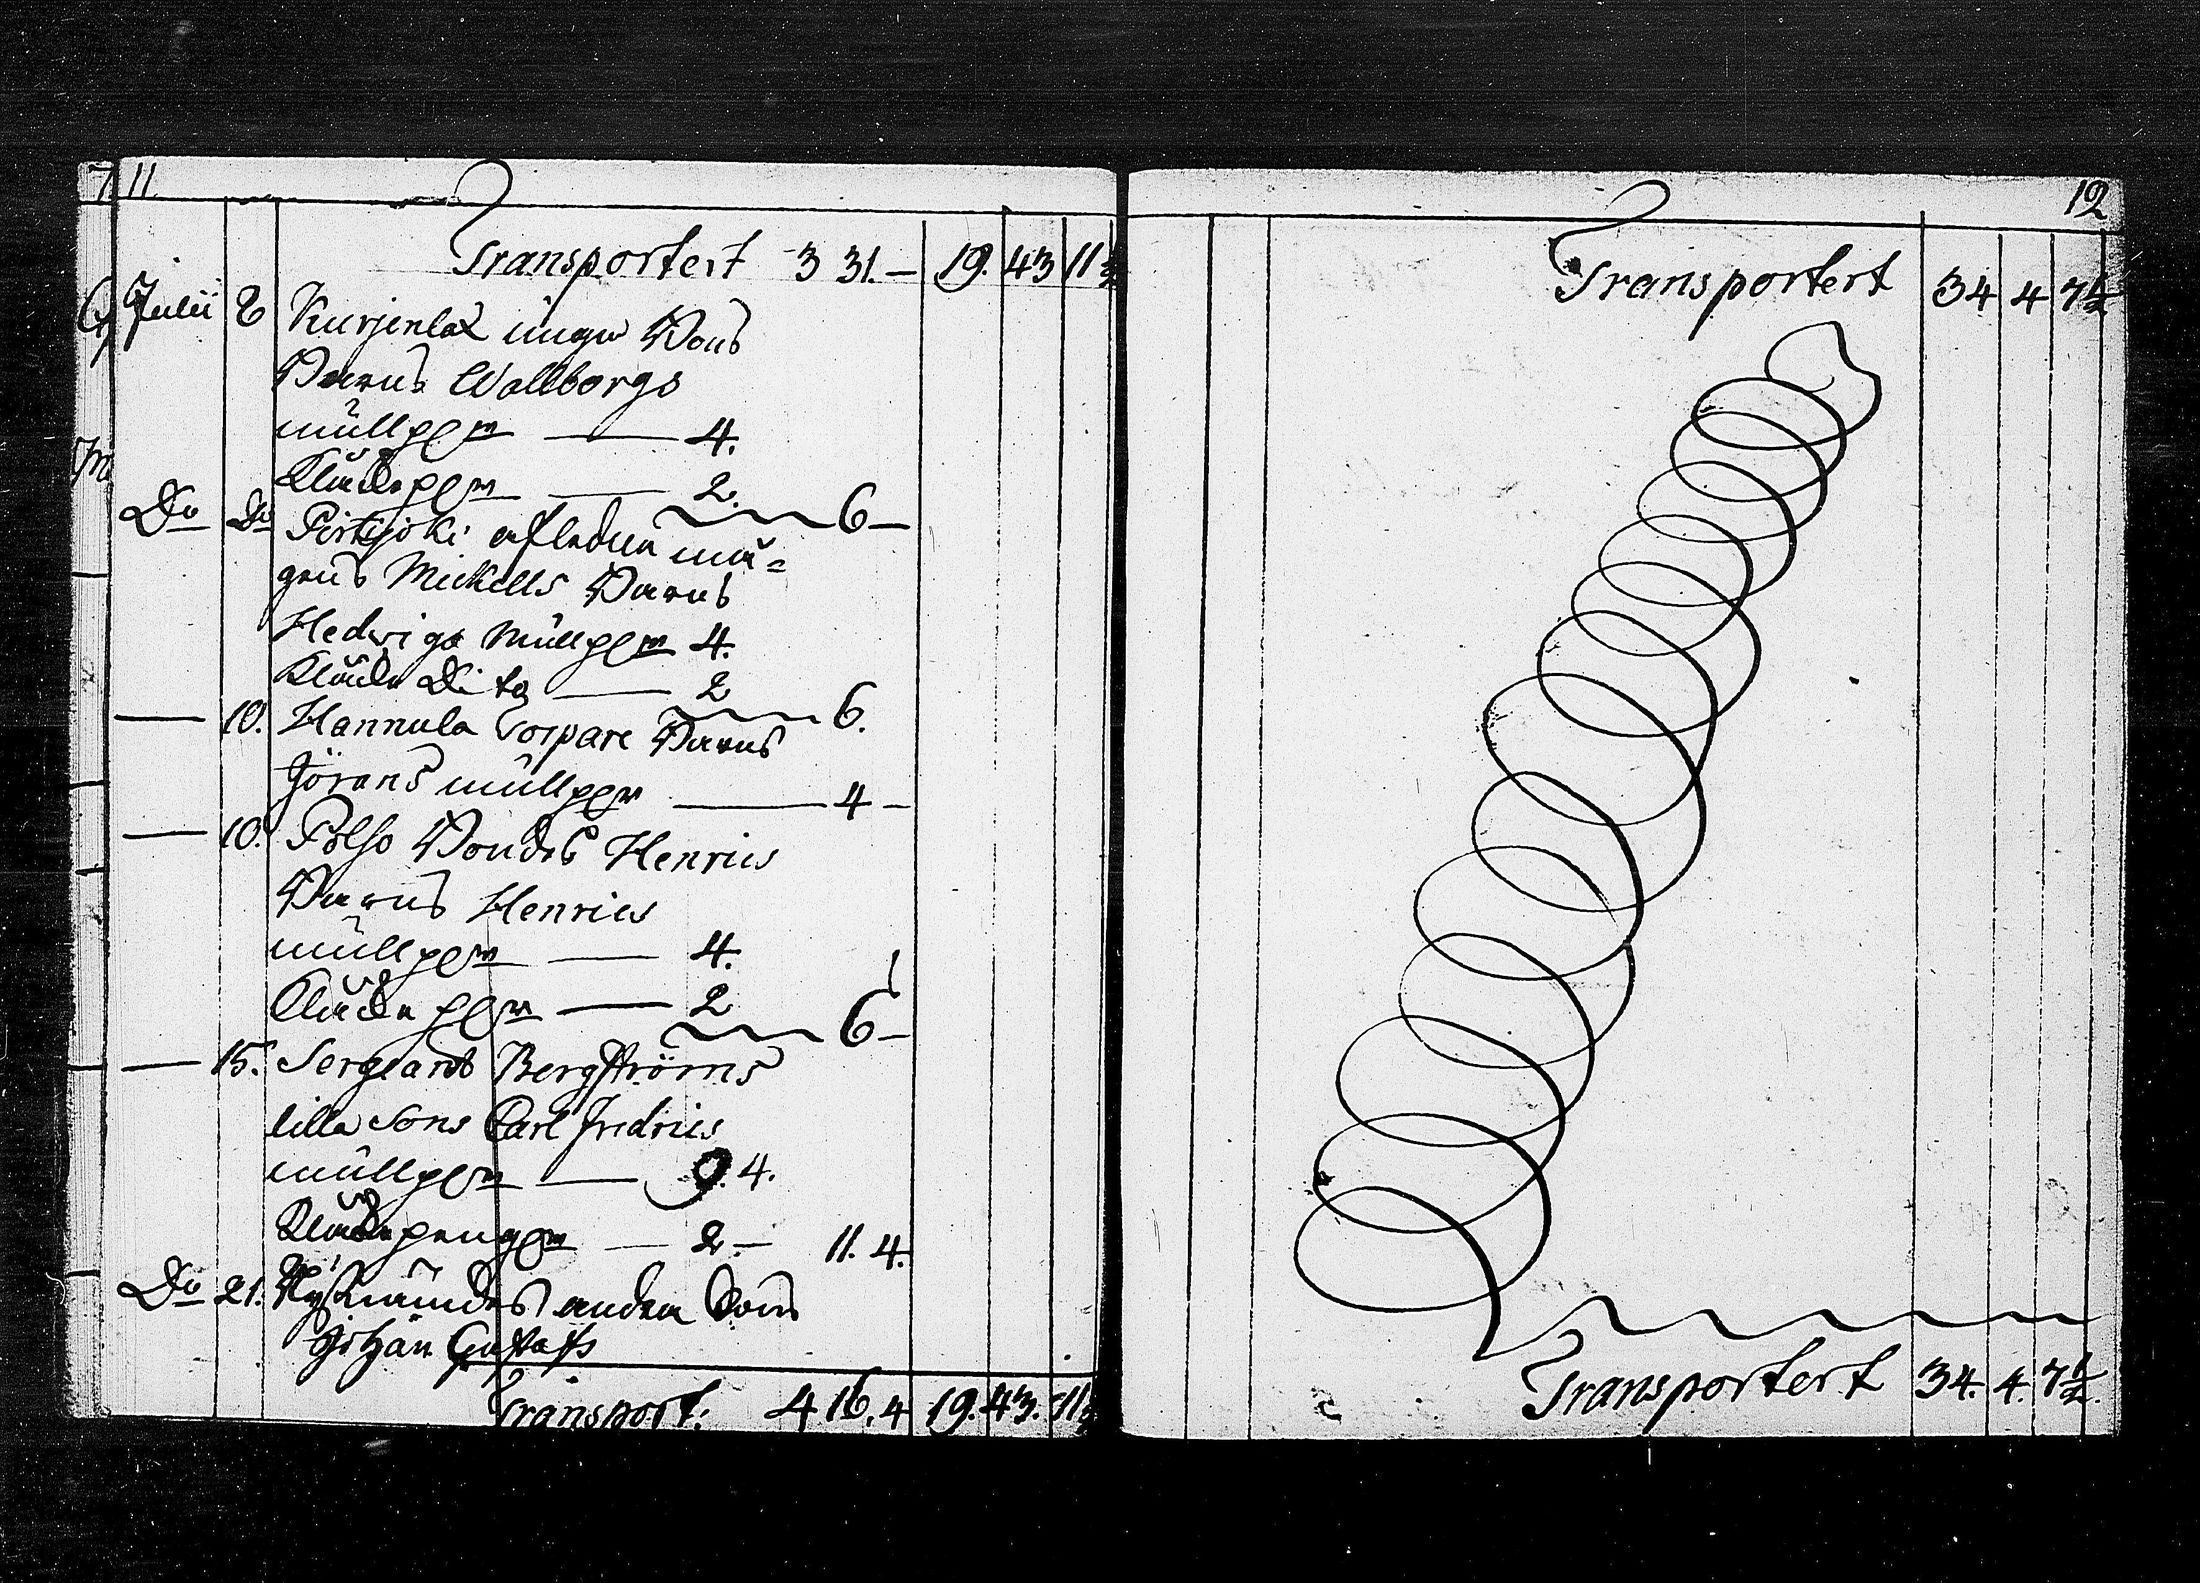 11
Transportert 3 31.— 19. 43 11½
Julii 8 Kurjenlax unga Sons
Barns Wallborgs
mullpgr — 4.
Klåckpgr — 2. 6—
Do Do Pirtijoki afledna
Mickells Barns
Hedwigs mullpgr 4.
Klåck Dito — 2 6.
— 10. Hannula Sorpare Barns
Jörans mullpgr — 4—
— 10. Polso Bondes Henrics
Barns Henrics
mullpgr — 4.
Klåcke pgr — 2 6—
— 15. Sergeant Bergströms
lilla Sons Carl Fredrics
mullpgr — 9.4.
Klåckpengar — 2.— 11. 4.
Do 21. andra Sons
Johan Gustafs
Transport: 4 16. 4 19. 43. 11½
12
Transportert 34 4 7½
Transportert 34. 4. 7½.